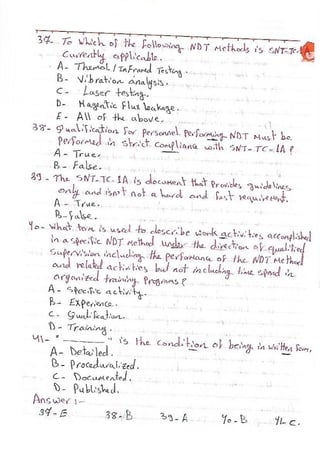 37- To Which of the Following NDT Methods is SNT-TC-1A
Currently applicable.
A- Thermal/Infrared Testing.
B- Vibration analysis.
C- Laser testing.
D- Magentic Flux Leakage.
E- All of the above.
38- Qualification For personnel performing NDT Must be
performed in strict Compliance with SNT-TC-1A?
A- True.
B- False.
39- The SNT-TC.1A is document that Provides guidelines
only and isn't not a hard and fast requirement.
A- True.
B- False.
40- What term is used to describe work activities accomplished
in a specific NDT Method under the direction of qualified
Supervision including the performance of the NDT Method
and related activities but not including time spend in
organized training Programs?
A- Specific activity.
B- Experience.
C- Qualification.
D- Training.
41- "________" is the condition of being in written form.
A- Detailed.
B- Proceduralized.
C- Documented.
D- Published.
Answer:-
37-E 38-B 39-A 40-B 41 C.